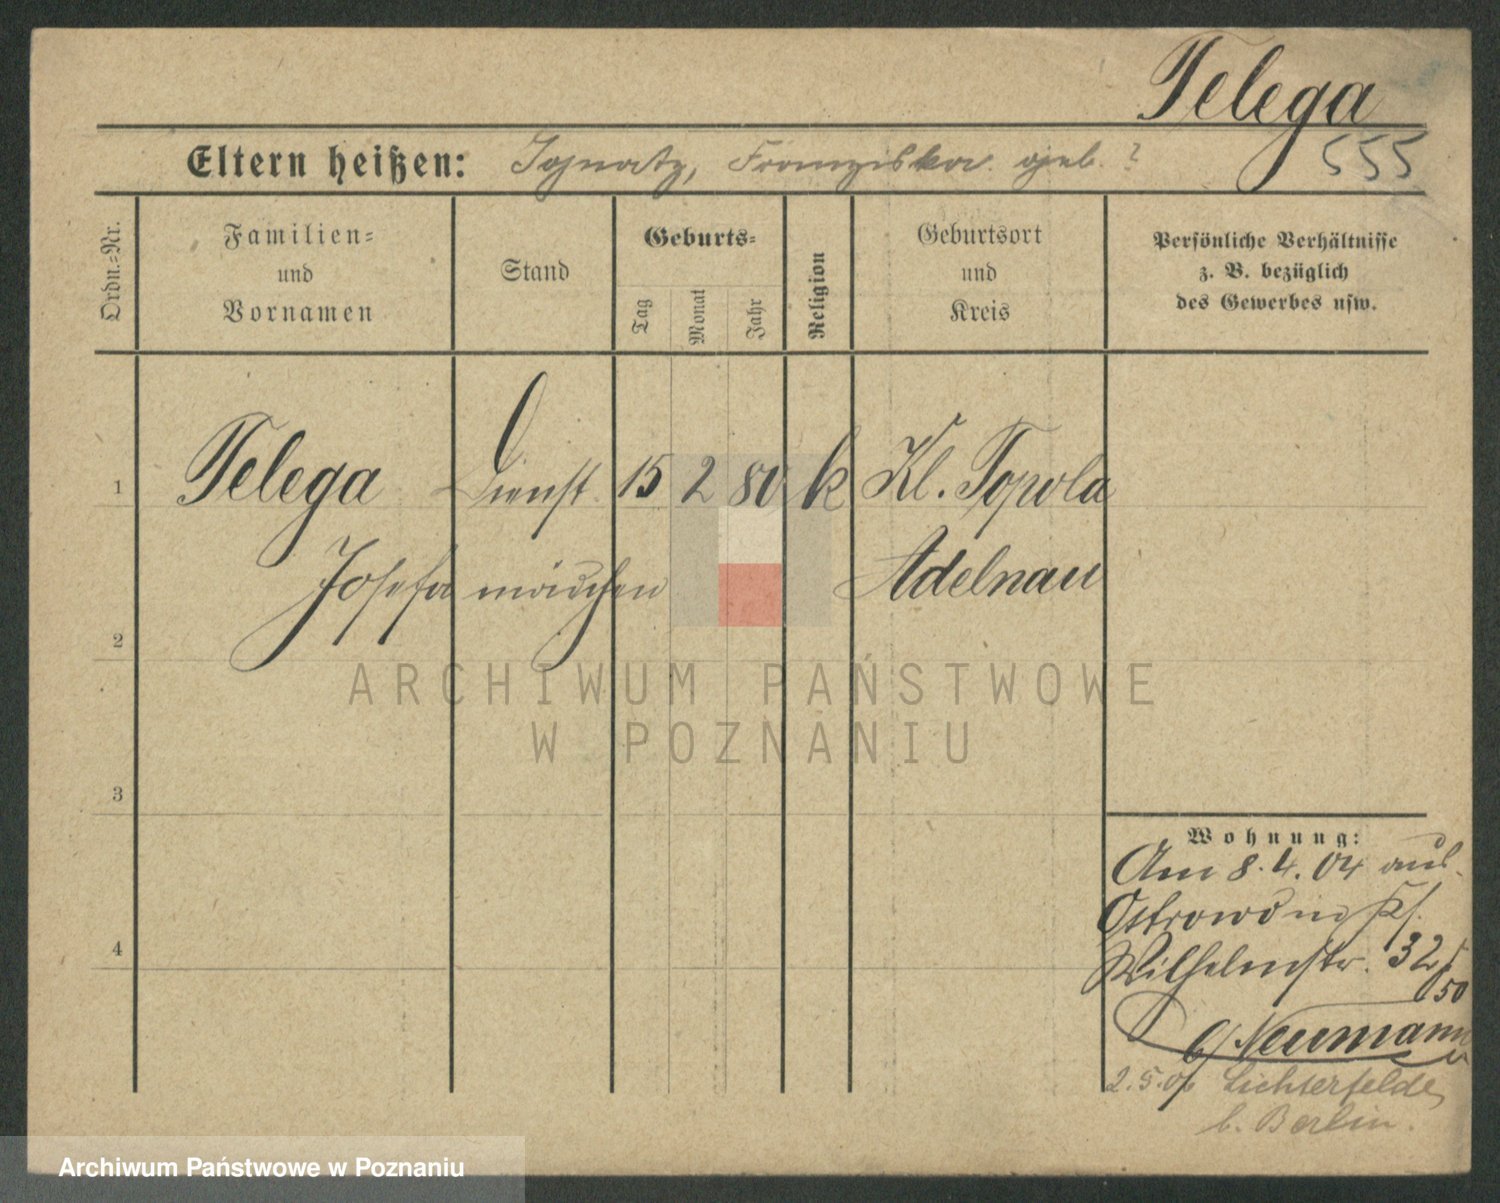 Telega
Eltern heißen: Ignatz, Franziska geb. ?
555
Ordn.-Nr.
Familien-
und
Vornamen
Stand
Geburts-
Tag
Monat
Jahr
Religion
Geburtsort
und
Kreis
Persönliche Verhältnisse
z. B. bezüglich
des Gewerbes usw.
1 Telega Dienst 15 2 80 k Kl. Topola
Josefa mädchen Adelnau
2
3
4
Wohnung:
Am 8.4.04 aus
Ostrowo
Wilhelmstr. 32
50
b/ Neumann
2.5.06 Lichterfelde
b. Berlin.
ARCHIWUM PAŃSTWOWE
W POZNANIU
Archiwum Państwowe w Poznaniu